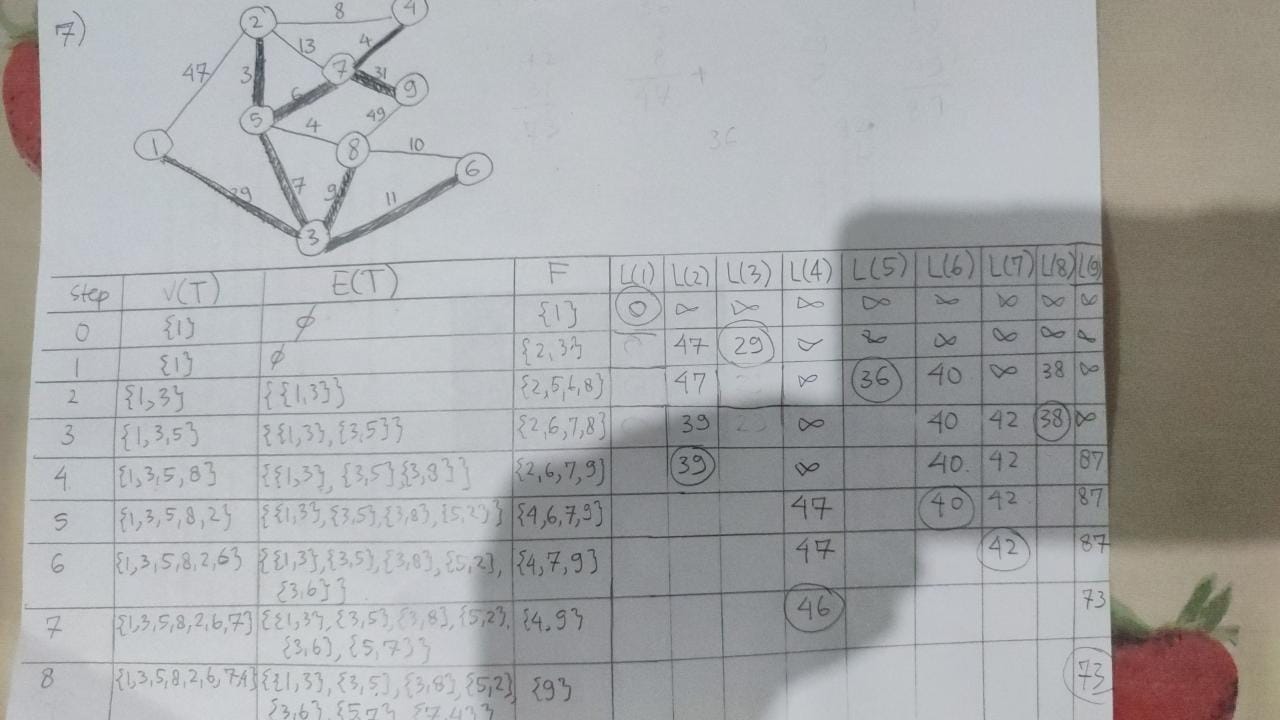 7)
2 8 4
13 4
47 3 7 31
6 9
5 4 49
1 8 10
6
29 7 9 11
3
Step V(T) E(T) F L(1) L(2) L(3) L(4) L(5) L(6) L(7) L(8) L(9)
0 {1} ∅ {1} 0 ∞ ∞ ∞ ∞ ∞ ∞ ∞ ∞
1 {1} ∅ {2,3} 47 29 ∞ ∞ ∞ ∞ ∞ ∞
2 {1,3} {{1,3}} {2,5,6,8} 47 ∞ 36 40 ∞ 38 ∞
3 {1,3,5} {{1,3},{3,5}} {2,6,7,8} 39 ∞ 40 42 38 ∞
4 {1,3,5,8} {{1,3}, {3,5}{3,8}} {2,6,7,9} 39 ∞ 40 42 87
5 {1,3,5,8,2} {{1,3},{3,5},{3,8},{5,2}} {4,6,7,9} 47 40 42 87
6 {1,3,5,8,2,6} {{1,3},{3,5},{3,8},{5,2}, {4,7,9} 47 42 87
{3,6}}
7 {1,3,5,8,2,6,7} {{1,3},{3,5},{3,8},{5,2}, {4,9} 46 73
{3,6},{5,7}}
8 {1,3,5,8,2,6,7,4} {{1,3},{3,5},{3,8},{5,2} {9} 73
{3,6},{5,7},{7,4}}